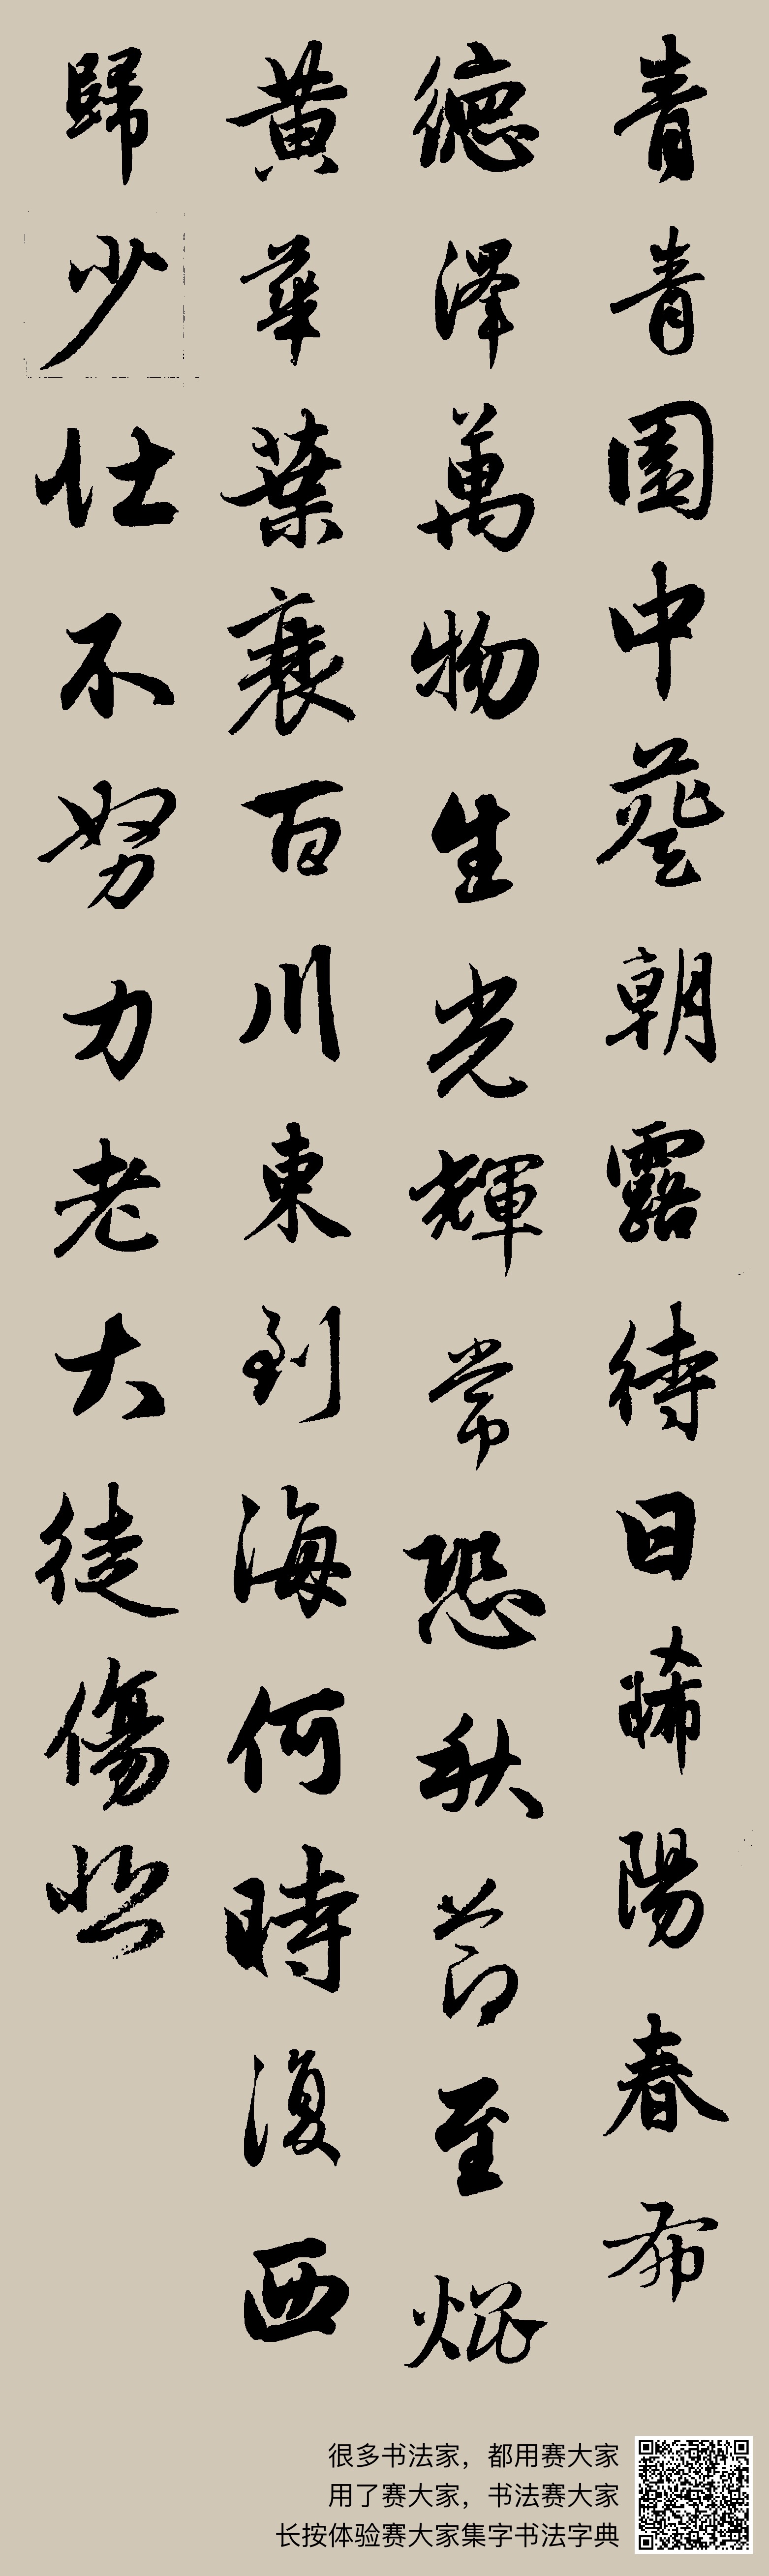 青青園中葵朝露待日晞陽春布
德澤萬物生光輝常恐秋節至焜
黄華葉衰百川東到海何時復西
歸少壮不努力老大徒傷悲
很多书法家，都用赛大家
用了赛大家，书法赛大家
长按体验赛大家集字书法字典